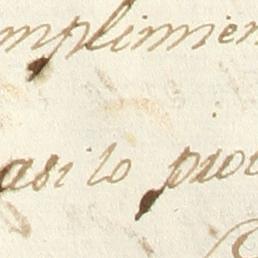 mplimien
asi lo prov